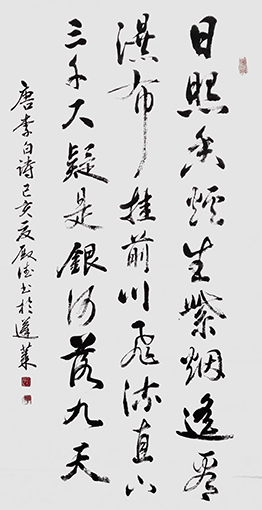 日照香爐生紫烟遥看
瀑布挂前川飛流直下
三千尺疑是銀河落九天
唐李白诗己亥夏殿书於蓬莱